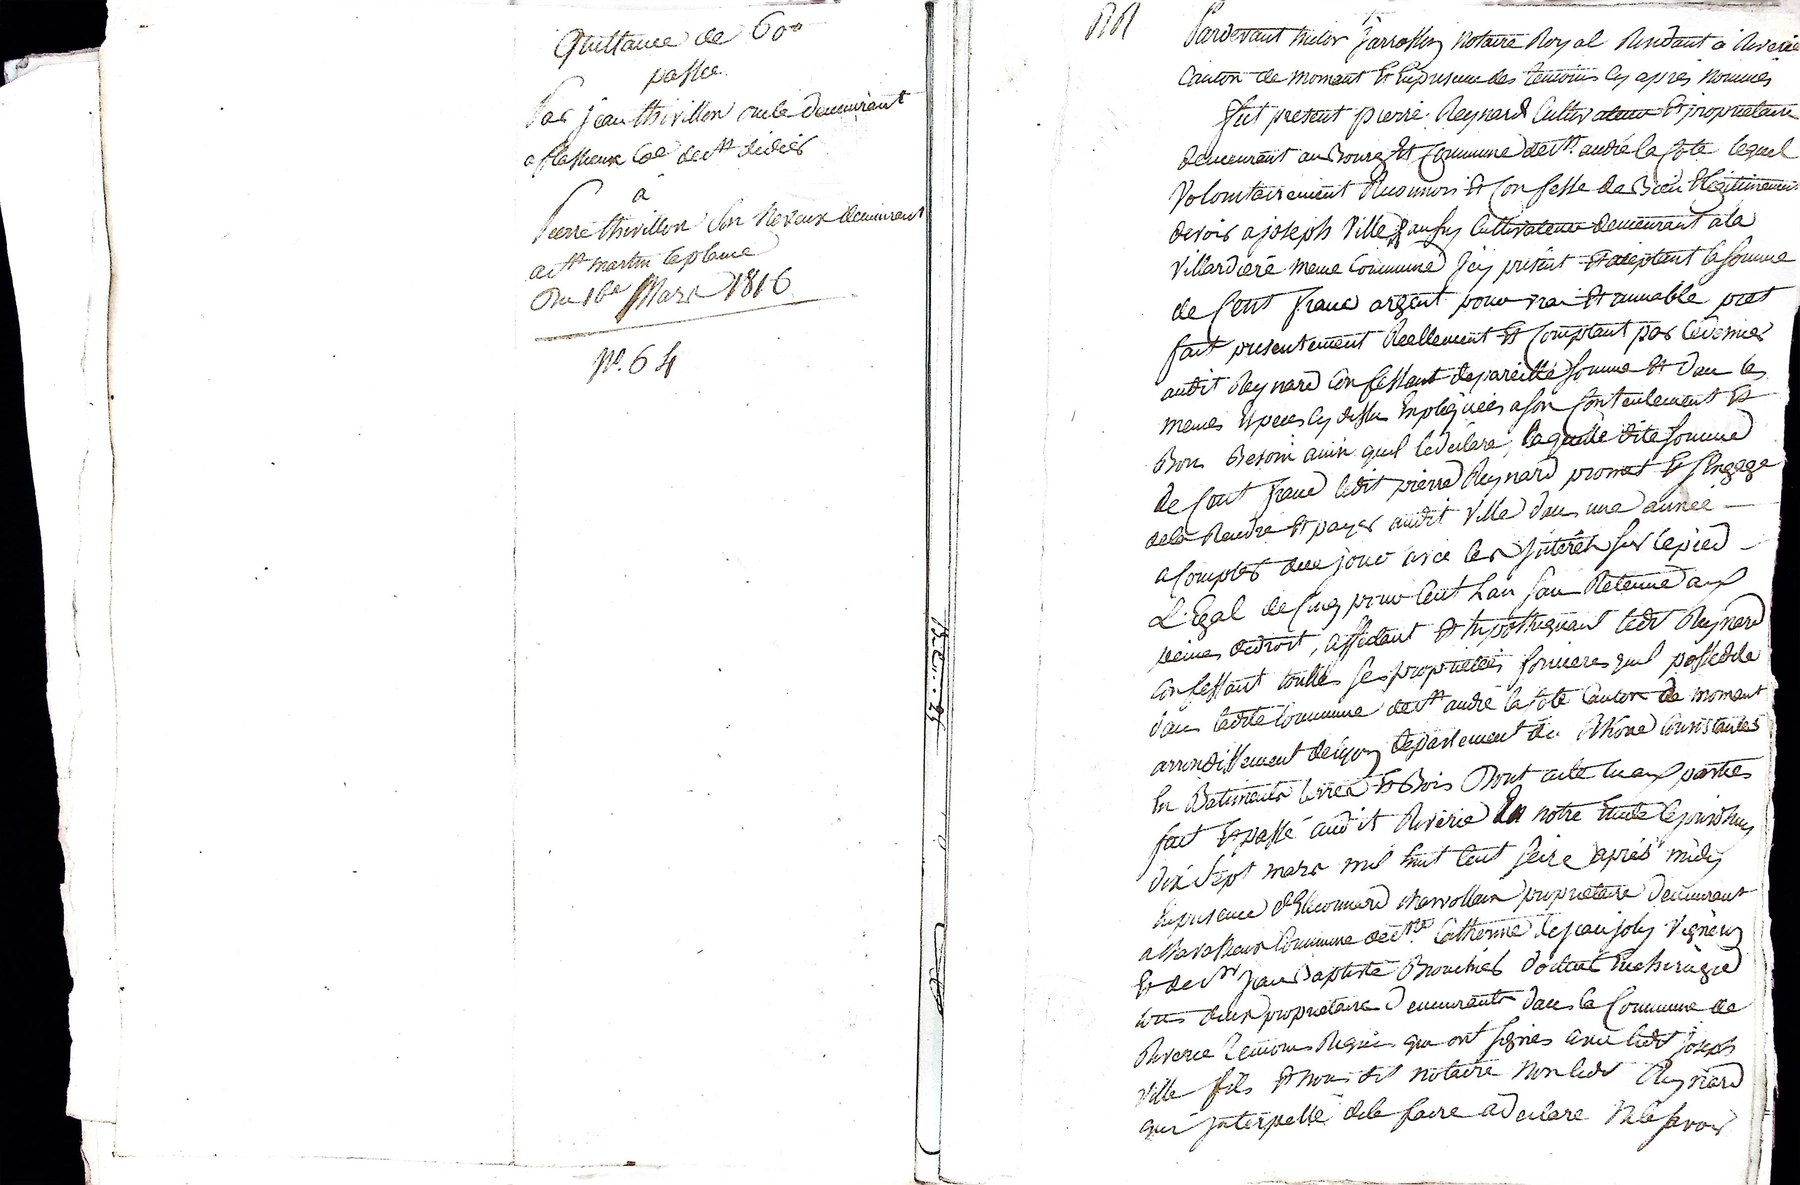 Quittance de 600
passée
Par jean thivillon oncle demeurant
a flassieux Coe de st. didier
a
Pierre thivillon son Neveux demeurant
a st. martin laplaine
Du 16e Mars 1816
No. 64
Pardevant Notaire Royal Residant a Riverie
Canton de mornant Et En presence des temoins Cy après nommés
fut present pierre Reynard Cultivateur Et proprietaire
demeurant au Bourg Et Commune de st. andré la Cote lequel
Volontairement Reconnoi Et Confesse de Bien Et legitimement
devoir a joseph Ville fils aussy Cultivateur demeurant a la
Villardiere meme Commune Jcy présent Et aceptant la somme
de Cent franc argent pour vrai Et amiable pret
fait presentement Reellement Et Comptant par ce dernier
audit Reynard Confessant de pareille somme Et dans les
memes Especes Cy dessu Expliquées a son Contentement Et
Bon Besoin ainsi quil le déclare, laquelle dite somme
de Cent franc ledit pierre Reynard promet Et s'Engage
de la Rendre Et payer audit Ville dans une année
a Compter de ce jour avec les Jnterets sur le pied
L'Egal de Cinq pour Cent L'an sans Retenue aux
peines de droit, affectant Et hypothequant ledit Reynard
Confessant toutte ses proprietés foncieres quil possede
dans ladite Commune de st. andré la Cote Canton de mornant
arrondissement de lyon departement du Rhône Consistantes
En Batiments terres Et Bois Dont acte lu aux parties
fait Et passé audit Riverie En notre Etude le jourdhuy
dix sept mars mil huit Cent seize après midy
En presence d'Eleonnard proprietaire demeurant
a Commune de ste. Catherine de jean joly Vigneron
Et de sr. Jean Baptiste Brouchier docteur En chirugie
tous deux proprietaire demeurants dans la Commune de
Riverie temoins Requis qui ont signés avec ledit joseph
Ville fils Et nous dit notaire Non ledit Reynard
qui Jnterpellé de le faire a declaré Ne le savoir